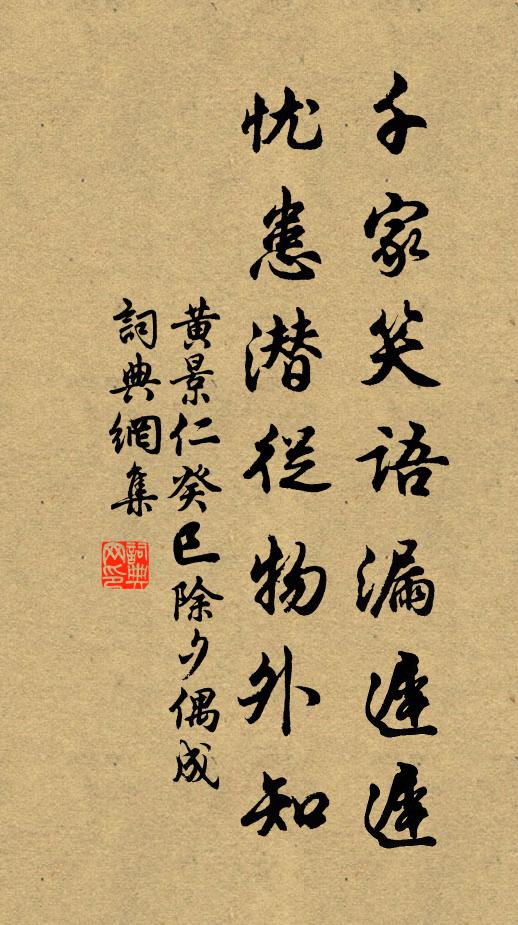 千家笑語漏遲遲
忧患潜從物外知
黃景仁癸巳除夕偶成
詞典網集
詞典网印